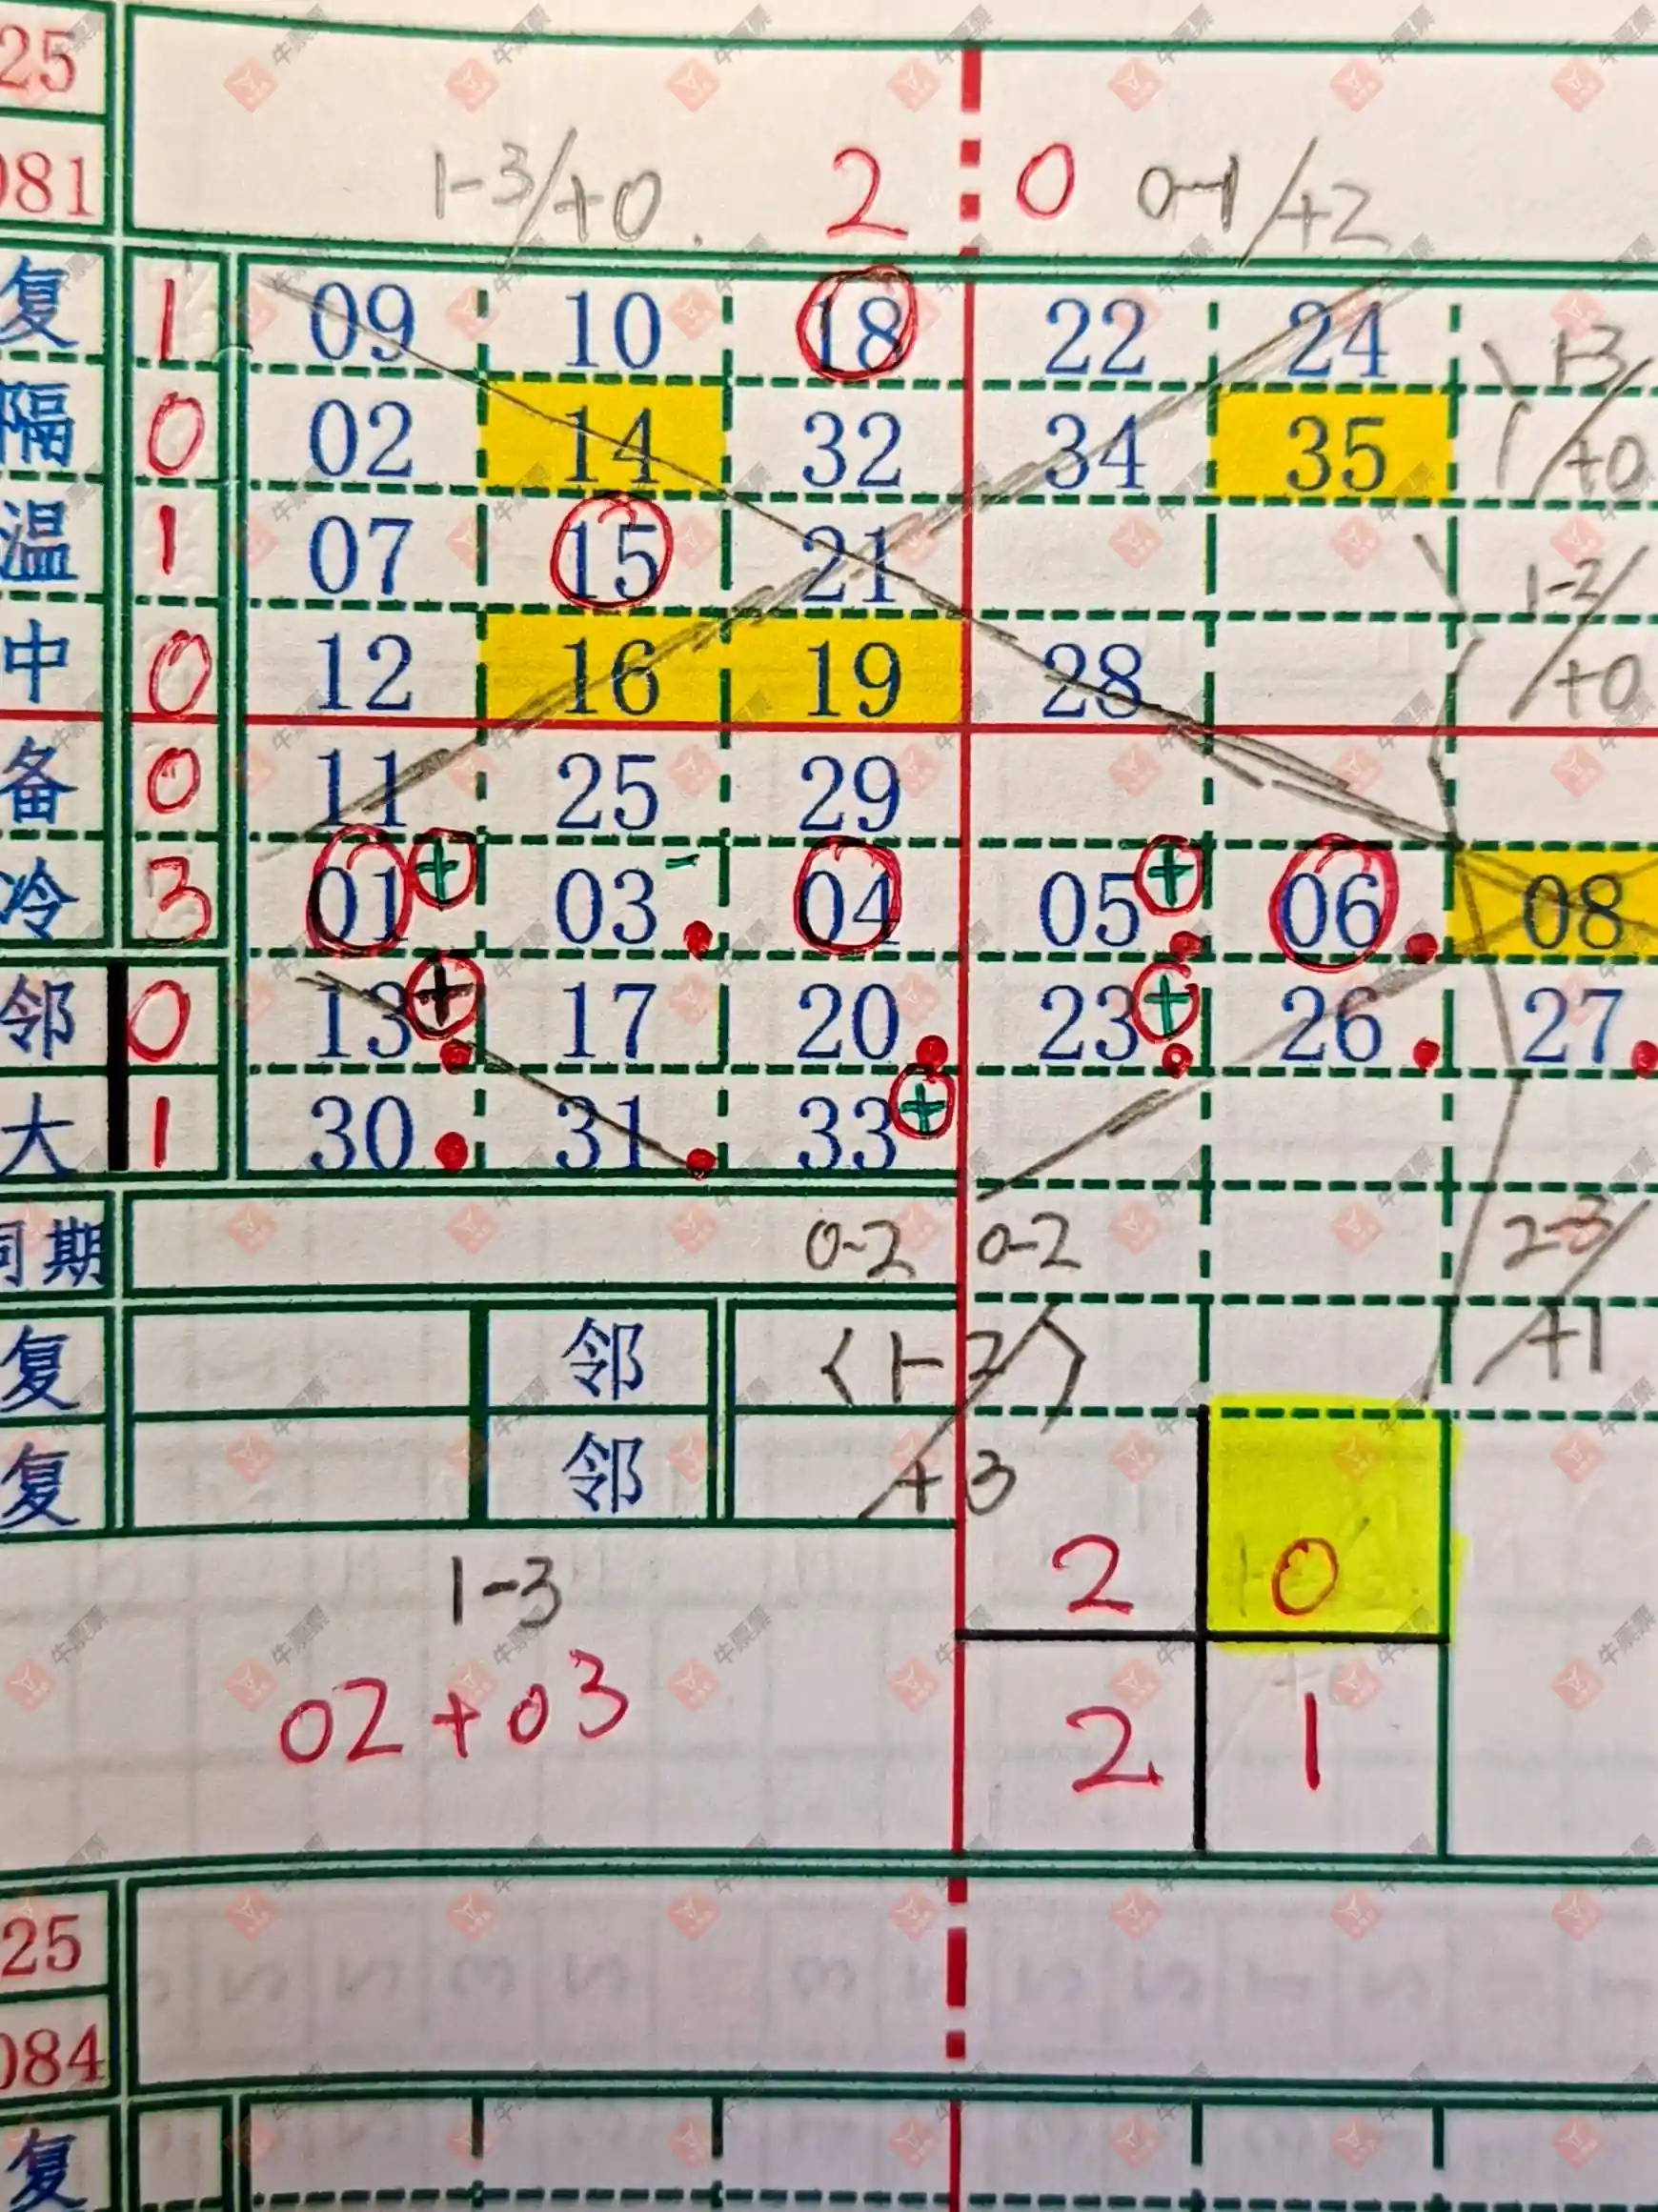 25
081 1-3/+0. 2 0 0-1/+2
复 1 09 10 18 22 24 1-3/
隔 0 02 14 32 34 35 +0
温 1 07 15 21 1-2/
中 0 12 16 19 28 +0
备 0 11 25 29
冷 3 01 + 03 - 04 05 + 06 08
邻 0 13 + 17 20 23 + 26 27
大 1 30 31 33 +
同期 0-2 0-2 2-3/
复 邻 <1-2/> +1
复 邻 +3
1-3 2 0
02+03 2 1
25
084
复
牛票票